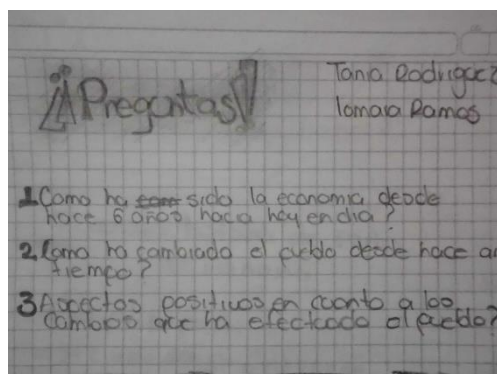 ¡¡Preguntas!
Tania Rodriguez
Iomara Ramos
1 Como ha sido la economia desde
hace 6 años hacia hoy en dia?
2 Como ha cambiado el pueblo desde hace
tiempo?
3 Aspectos positivos en cuanto a los
cambios que ha efectuado el pueblo?